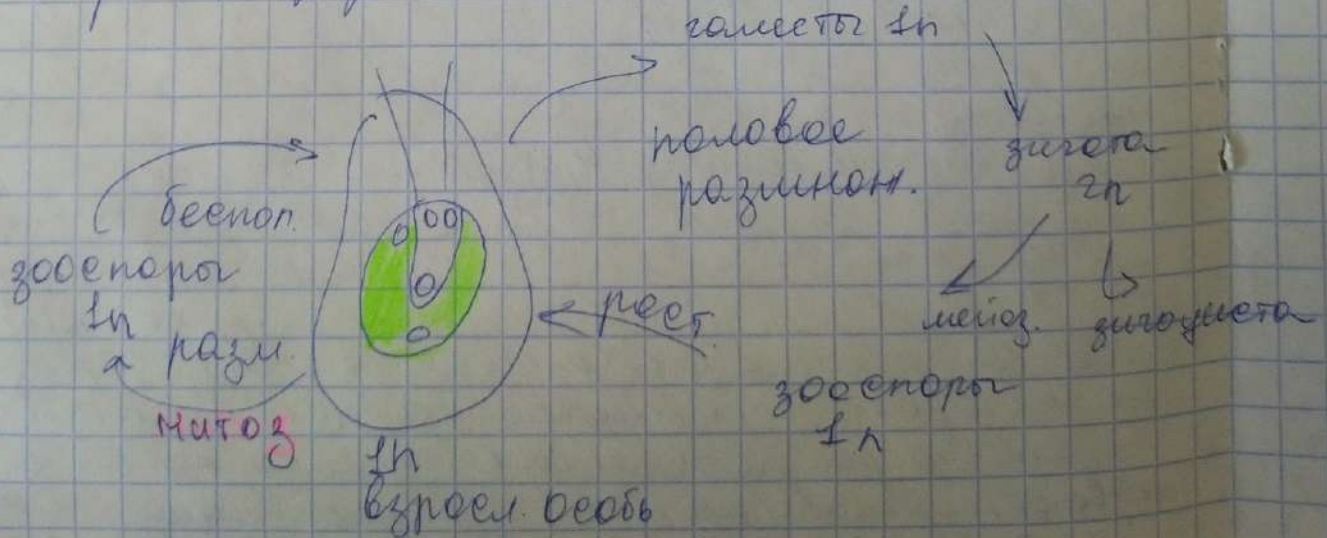 гаметы 1n
половое
размнож.
зигота
2n
беспол.
зооспоры
1n
разм.
митоз
рост
мейоз.
зигоциста
зооспоры
1n
1n
взросл. особь